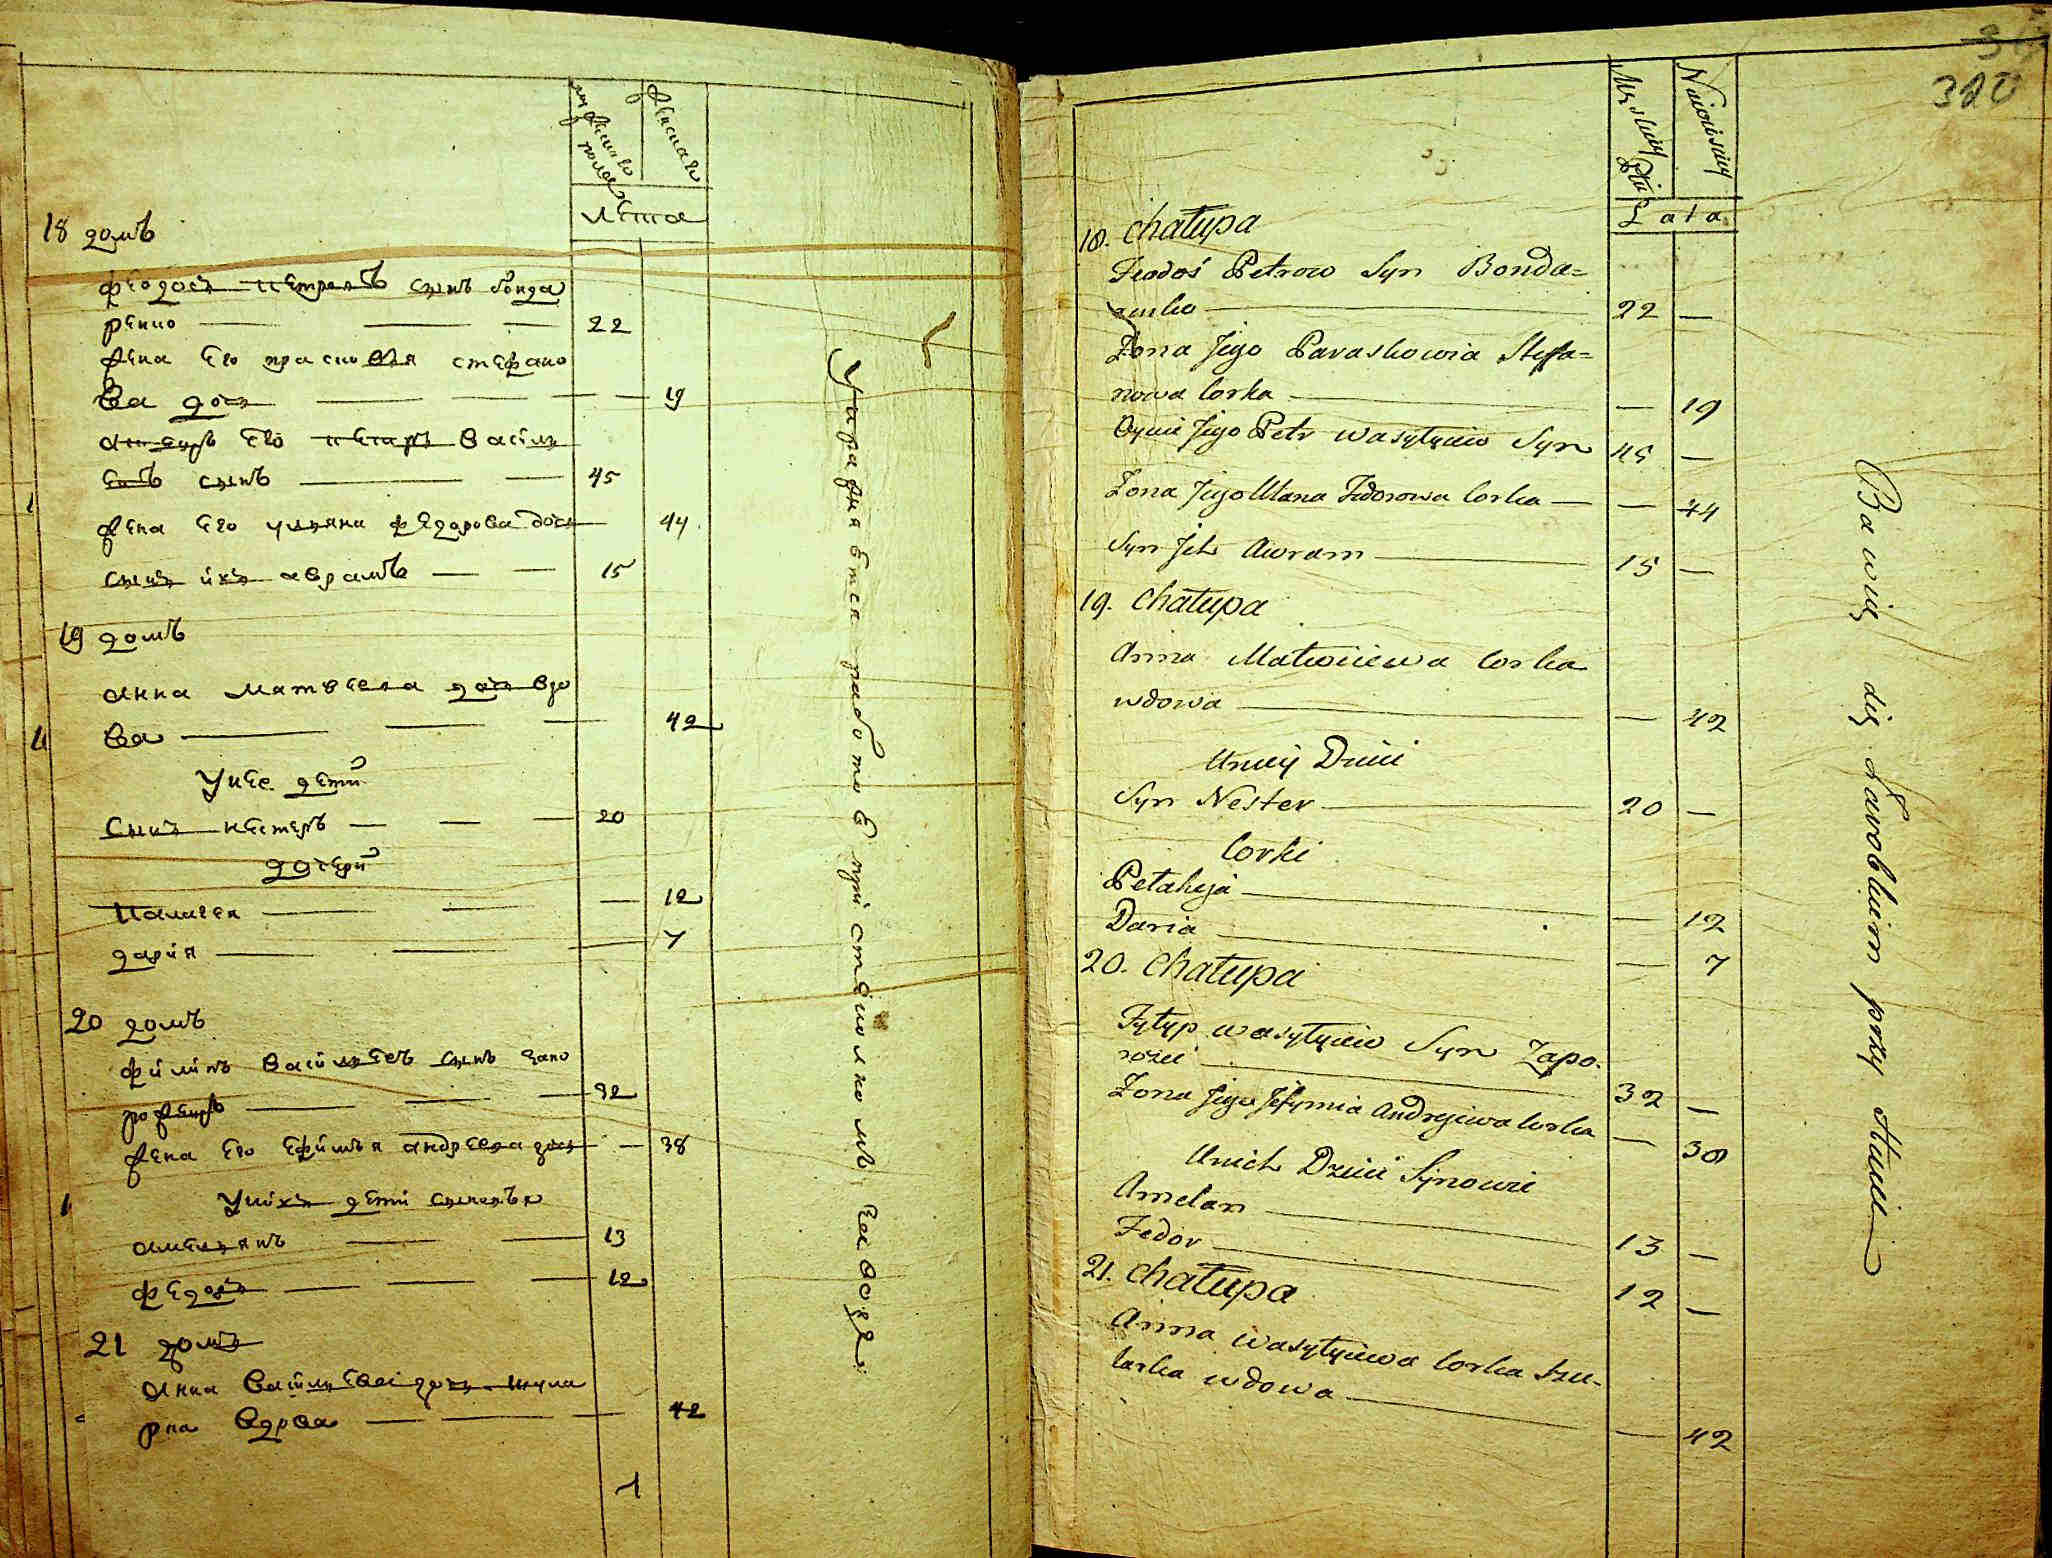 мужеска
полоѵ
женска
лета
18 домъ
феодоси петровъ сынъ бонда
ренко — 22
жена его прасковия стефано
ва дочь — 19
отецъ его петръ василь
евъ сынъ — 45
жена его ульяна федорова дочь 44
сынъ ихъ аврамъ — 15
19 домъ
анна матвеева дочь вдо
ва — 42
у нее дети
сынъ нестеръ — 20
дочери
палагея — 12
дария — 7
20 домъ
филипъ васильевъ сынъ запо
рожецъ — 32
жена его ефимья андреева дочь — 38
у нихъ дети сыновья
омельянъ — 13
федоръ — 12
21 домъ
анна васильева дочь шкуля
рка вдова — 42
1
Упражняется работою в пристойномъ заводе
320
Męskiey
Płci
Niewieściey
Lata
18. Chałupa
Feodoś Petrow Syn Bonda=
renko — 22 —
Żona Jego Paraskowia Stefa=
nowa Corka — 19
Oyciec Jego Petr wasylyiew Syn 45 —
Żona Jego Ulana Fedorowa Corka — 44
Syn Jch Awram — 15 —
19. Chałupa
Anna Matwiiewa Corka
wdowa — 42
Uniey Dzieci
Syn Nester — 20 —
Corki
Pełahyja — 12
Daria — 7
20. Chałupa
Fyłyp wasylyiew Syn Zapo-
rożec — 32 —
Żona Jego Jefymia Andrejewa Corka — 38
Unich Dzieci Synowie
Amelan — 13 —
Fedor — 12 —
21. Chałupa
Anna wasylyiewa Corka Szu-
larka wdowa — 42
Bawią się Zarobkiem przy